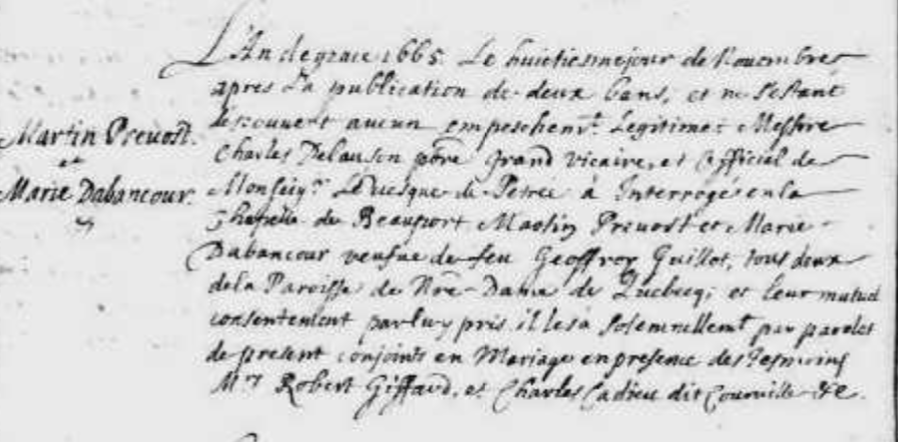 Martin Prevost.
et
Marie Dabancour.
L'An de grace 1665. Le huictiesme jour de Novembre
apres La publication de deux bans, et ne s'estant
descouvert aucun empeschem.t Legitime: Messire
Charles Delauson pbre Grand vicaire, et Official de
Monseig.r L'Evesque de Petrée à Interrogés en la
Chapelle de Beauport Martin Prevost et Marie
Dabancour veufue de feu Geoffroy Guillot, tous deux
de la Paroisse de Nre-Dame de Quebecq; et leur mutuel
consentement par luy pris, il les à Solemnellem.t par paroles
de present conjoints en Mariage en presence des Tesmoins
M.r Robert Giffard, et Charles Cadieu dit Courville &c.